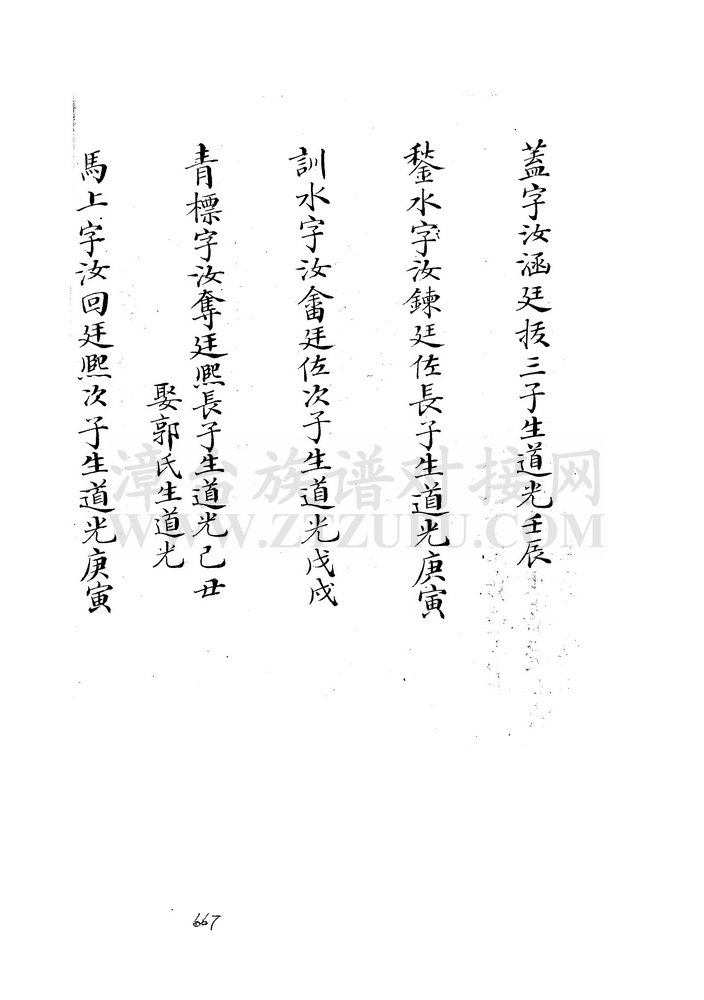 蓋字汝涵廷拔三子生道光壬辰
鍫水字汝鍊廷佐長子生道光庚寅
訓水字汝畬廷佐次子生道光戊戌
青標字汝奪廷熙長子生道光己丑
娶郭氏生道光
馬上字汝回廷熙次子生道光庚寅
漳台族谱对接网
WWW.ZTZUPU.COM
667